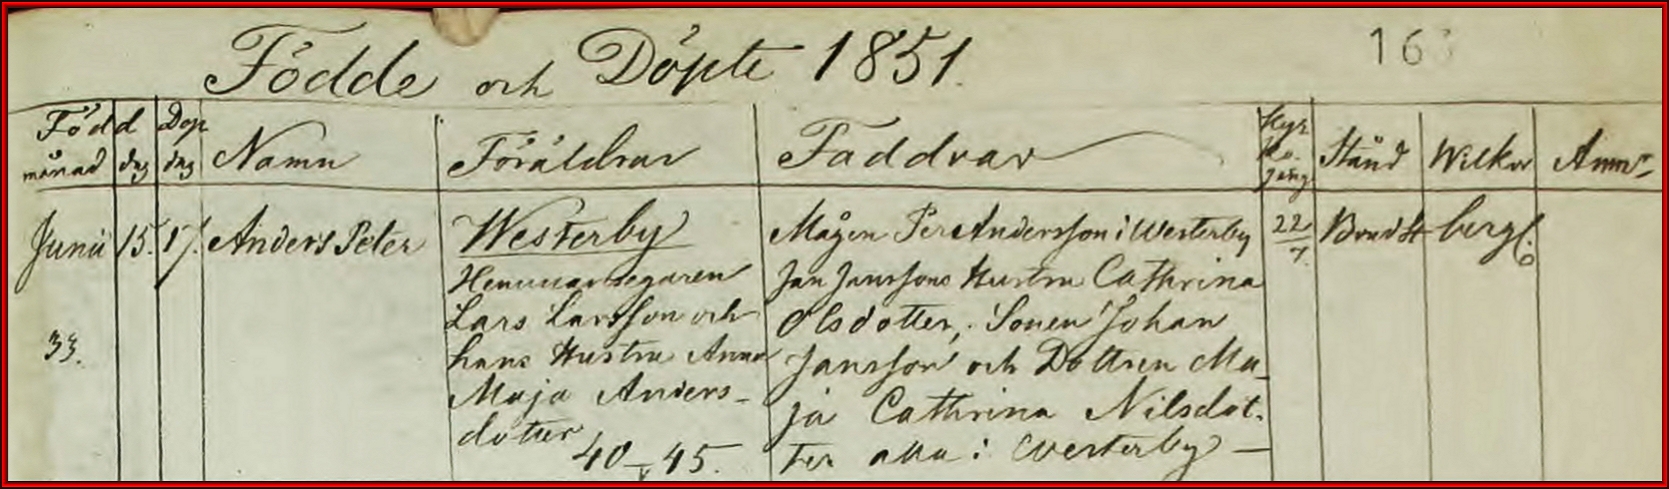 Födde och Döpte 1851.
163
Född månad
dag
Dop dag
Namn
Föräldrar
Faddrar
Kyrko. gång.
Stånd
Wilkor
Anm.
Junii
15.
17.
Anders Peter
33.
Westerby
Hemmansegaren
Lars Larsson och
hans Hustru Anna
Maja Anders-
dotter
40-45.
Mågen Per Andersson i Westerby
Jan Janssons Hustru Cathrina
Olsdotter, Sonen Johan
Jansson och Dottren Ma-
ja Cathrina Nilsdot-
ter alla i Westerby —
22/7.
bergl.